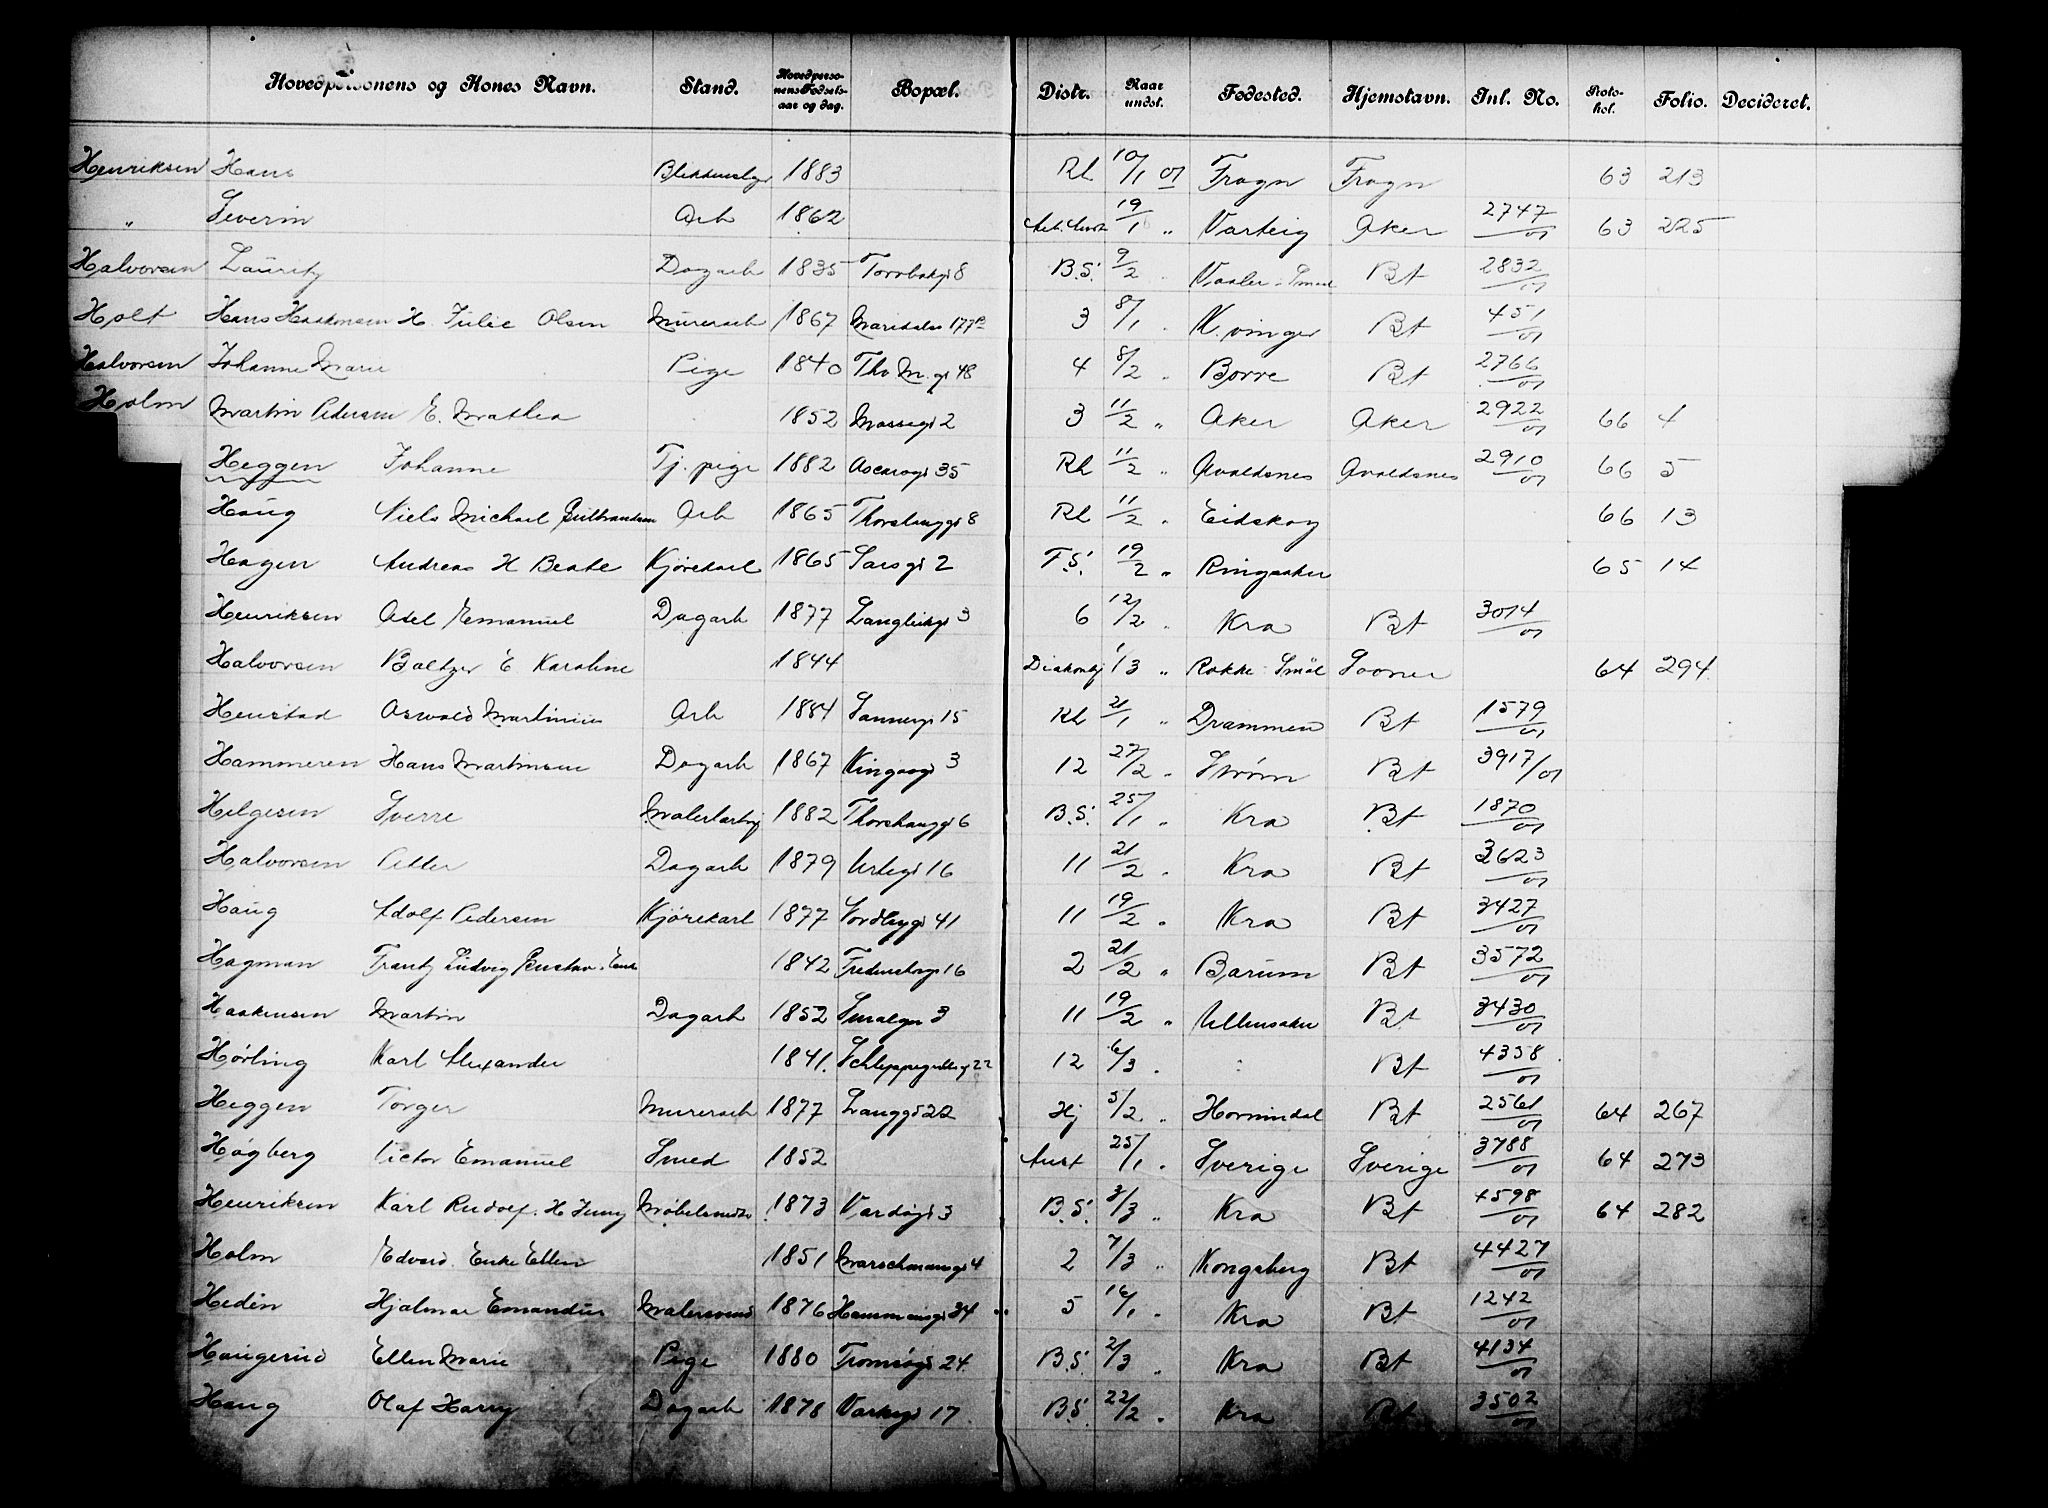 Hovedpersonens og Kones Navn. Stand. Hovedpersonens Fødselsaar og dag. Bopæl. Distr. Naar undst. Fødested. Hjemstavn. Inl. No. Protokol. Folio. Decideret.
Henriksen Hans 1883 Rh 10/1 01 Frogn Frogn 63 213
" Severin Arb 1862 19/1 " Varteig Aker 2747/01 63 225
Halvorsen Lauritz Dagarb 1835 Torvbakgt 8 B.S. 9/2 Vaaler i Smaal Bt 2832/01
Holt Hans Haakensen H. Julie Olsen Murerarb 1867 Maridalsv 177 3 8/1 K.vinger Bt 451/01
Halvorsen Johanne Marie Pige 1840 Th. M. gt 48 4 8/2 Borre Bt 2766/01
Holm Martin Pedersen E. Mathea 1852 Mossegt 2 3 11/2 " Aker Aker 2922/01 66 4
Heggen Johanne Tj. pige 1882 Oscarsgt 35 Rh 11/2 " Avaldsnes Avaldsnes 2910/01 66 5
Haug Niels Michael Gulbrandsen Arb 1865 Thorshauggt 8 Rh 11/2 " Eidskog 66 13
Hagen Andreas H Beate Kjørekarl 1865 Sarsgt 2 F.S. 19/2 " Ringsaker 65 14
Henriksen Axel Emanuel Dagarb 1877 Langleikgt 3 6 12/2 Kra Bt 3014/01
Halvorsen Baltzer E Karoline 1844 Diakonhj 1/3 " Rokke i Smål Sooner 64 294
Henstad Oswald Martinius Arb 1884 Sannergt 15 Rh 21/1 " Drammen Bt 1579/01
Hammeren Hans Martinsen Dagarb 1867 Kingosgt 3 12 27/2 " Strøm Bt 3917/01
Helgesen Sverre 1882 Thorshauggt 6 B.S. 25/1 " Kra Bt 1870/01
Halvorsen Petter Dagarb 1879 Urtegt 16 11 21/2 " Kra Bt 3623/01
Haug Adolf Pedersen Kjørekarl 1877 Nordbygt 41 11 19/2 " Kra Bt 3427/01
Hagman Frantz Ludvig Gustav. Enke 1842 Fredensborgv 16 2 21/2 " Bærum Bt 3572/01
Haakensen Martin Dagarb 1852 Smalgn 3 11 19/2 " Ullensaker Bt 3430/01
Hørling Karl Alexander 1841. Schleppegrellsgt 22 12 6/3 " Bt 4358/01
Heggen Torger Murerarb 1877 Langgt 22 Hj 5/2 " Hornindal Bt 2561/01 64 267
Høgberg Victor Emanuel Smed 1852 Anst 25/1 " Sverige Sverige 3788/01 64 273
Henriksen Karl Rudolf. H Jenny Møbelsnedk 1873 Vardøgt 3 B.S. 3/3 " Kra Bt 4598/01 64 282
Holm Edvard. Enke Ellen 1851 Marschmansgt 4 2 7/3 " Kongsberg Bt 4427/01
Hedén Hjalmar Emandus Malersvend 1876 Hammersgt 34 5 16/1 " Kra Bt 1242/01
Haugerud Ellen Marie Pige 1880 Tromsøgt 24 B.S. 2/3 " Kra Bt 4134/01
Haug Olaf Harry Dagarb 1878 Verksgt 17 B.S. 22/2 " Kra Bt 3502/01